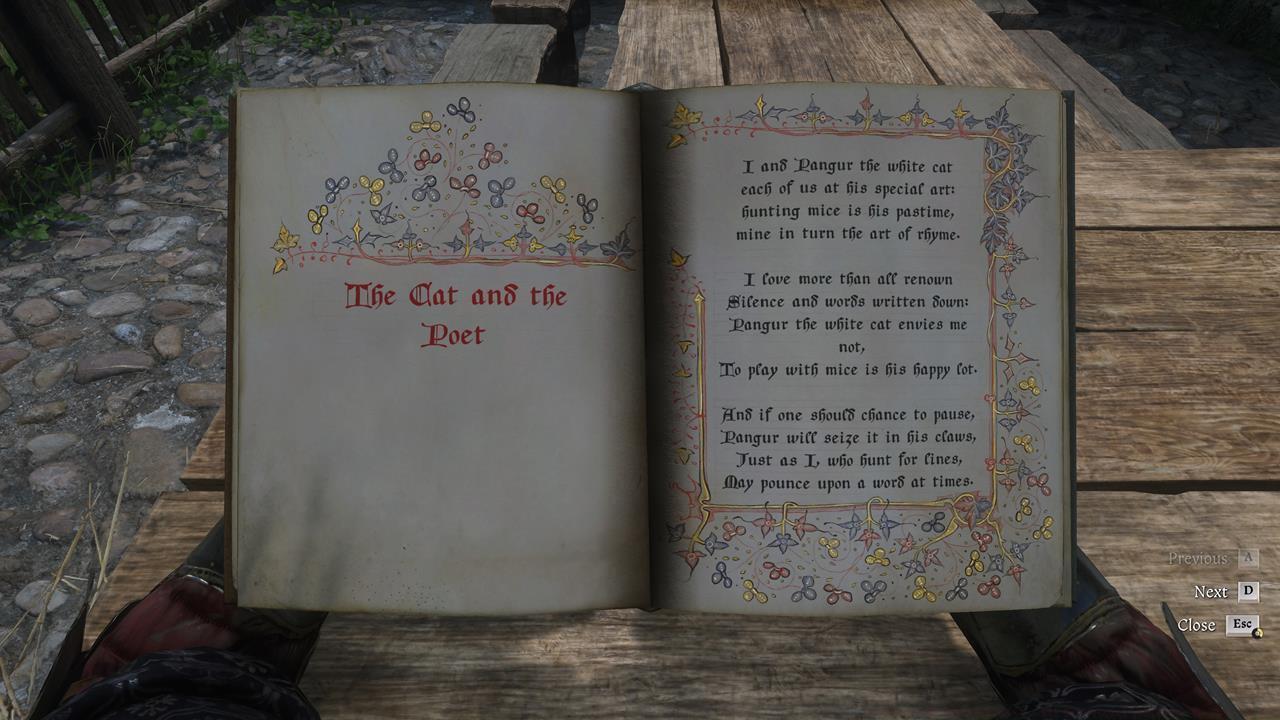 The Cat and the
Poet
I and Pangur the white cat
each of us at his special art:
hunting mice is his pastime,
mine in turn the art of rhyme.
I love more than all renown
Silence and words written down:
Pangur the white cat envies me
not,
To play with mice is his happy lot.
And if one should chance to pause,
Pangur will seize it in his claws,
Just as I, who hunt for lines,
May pounce upon a word at times.
Previous A
Next D
Close Esc